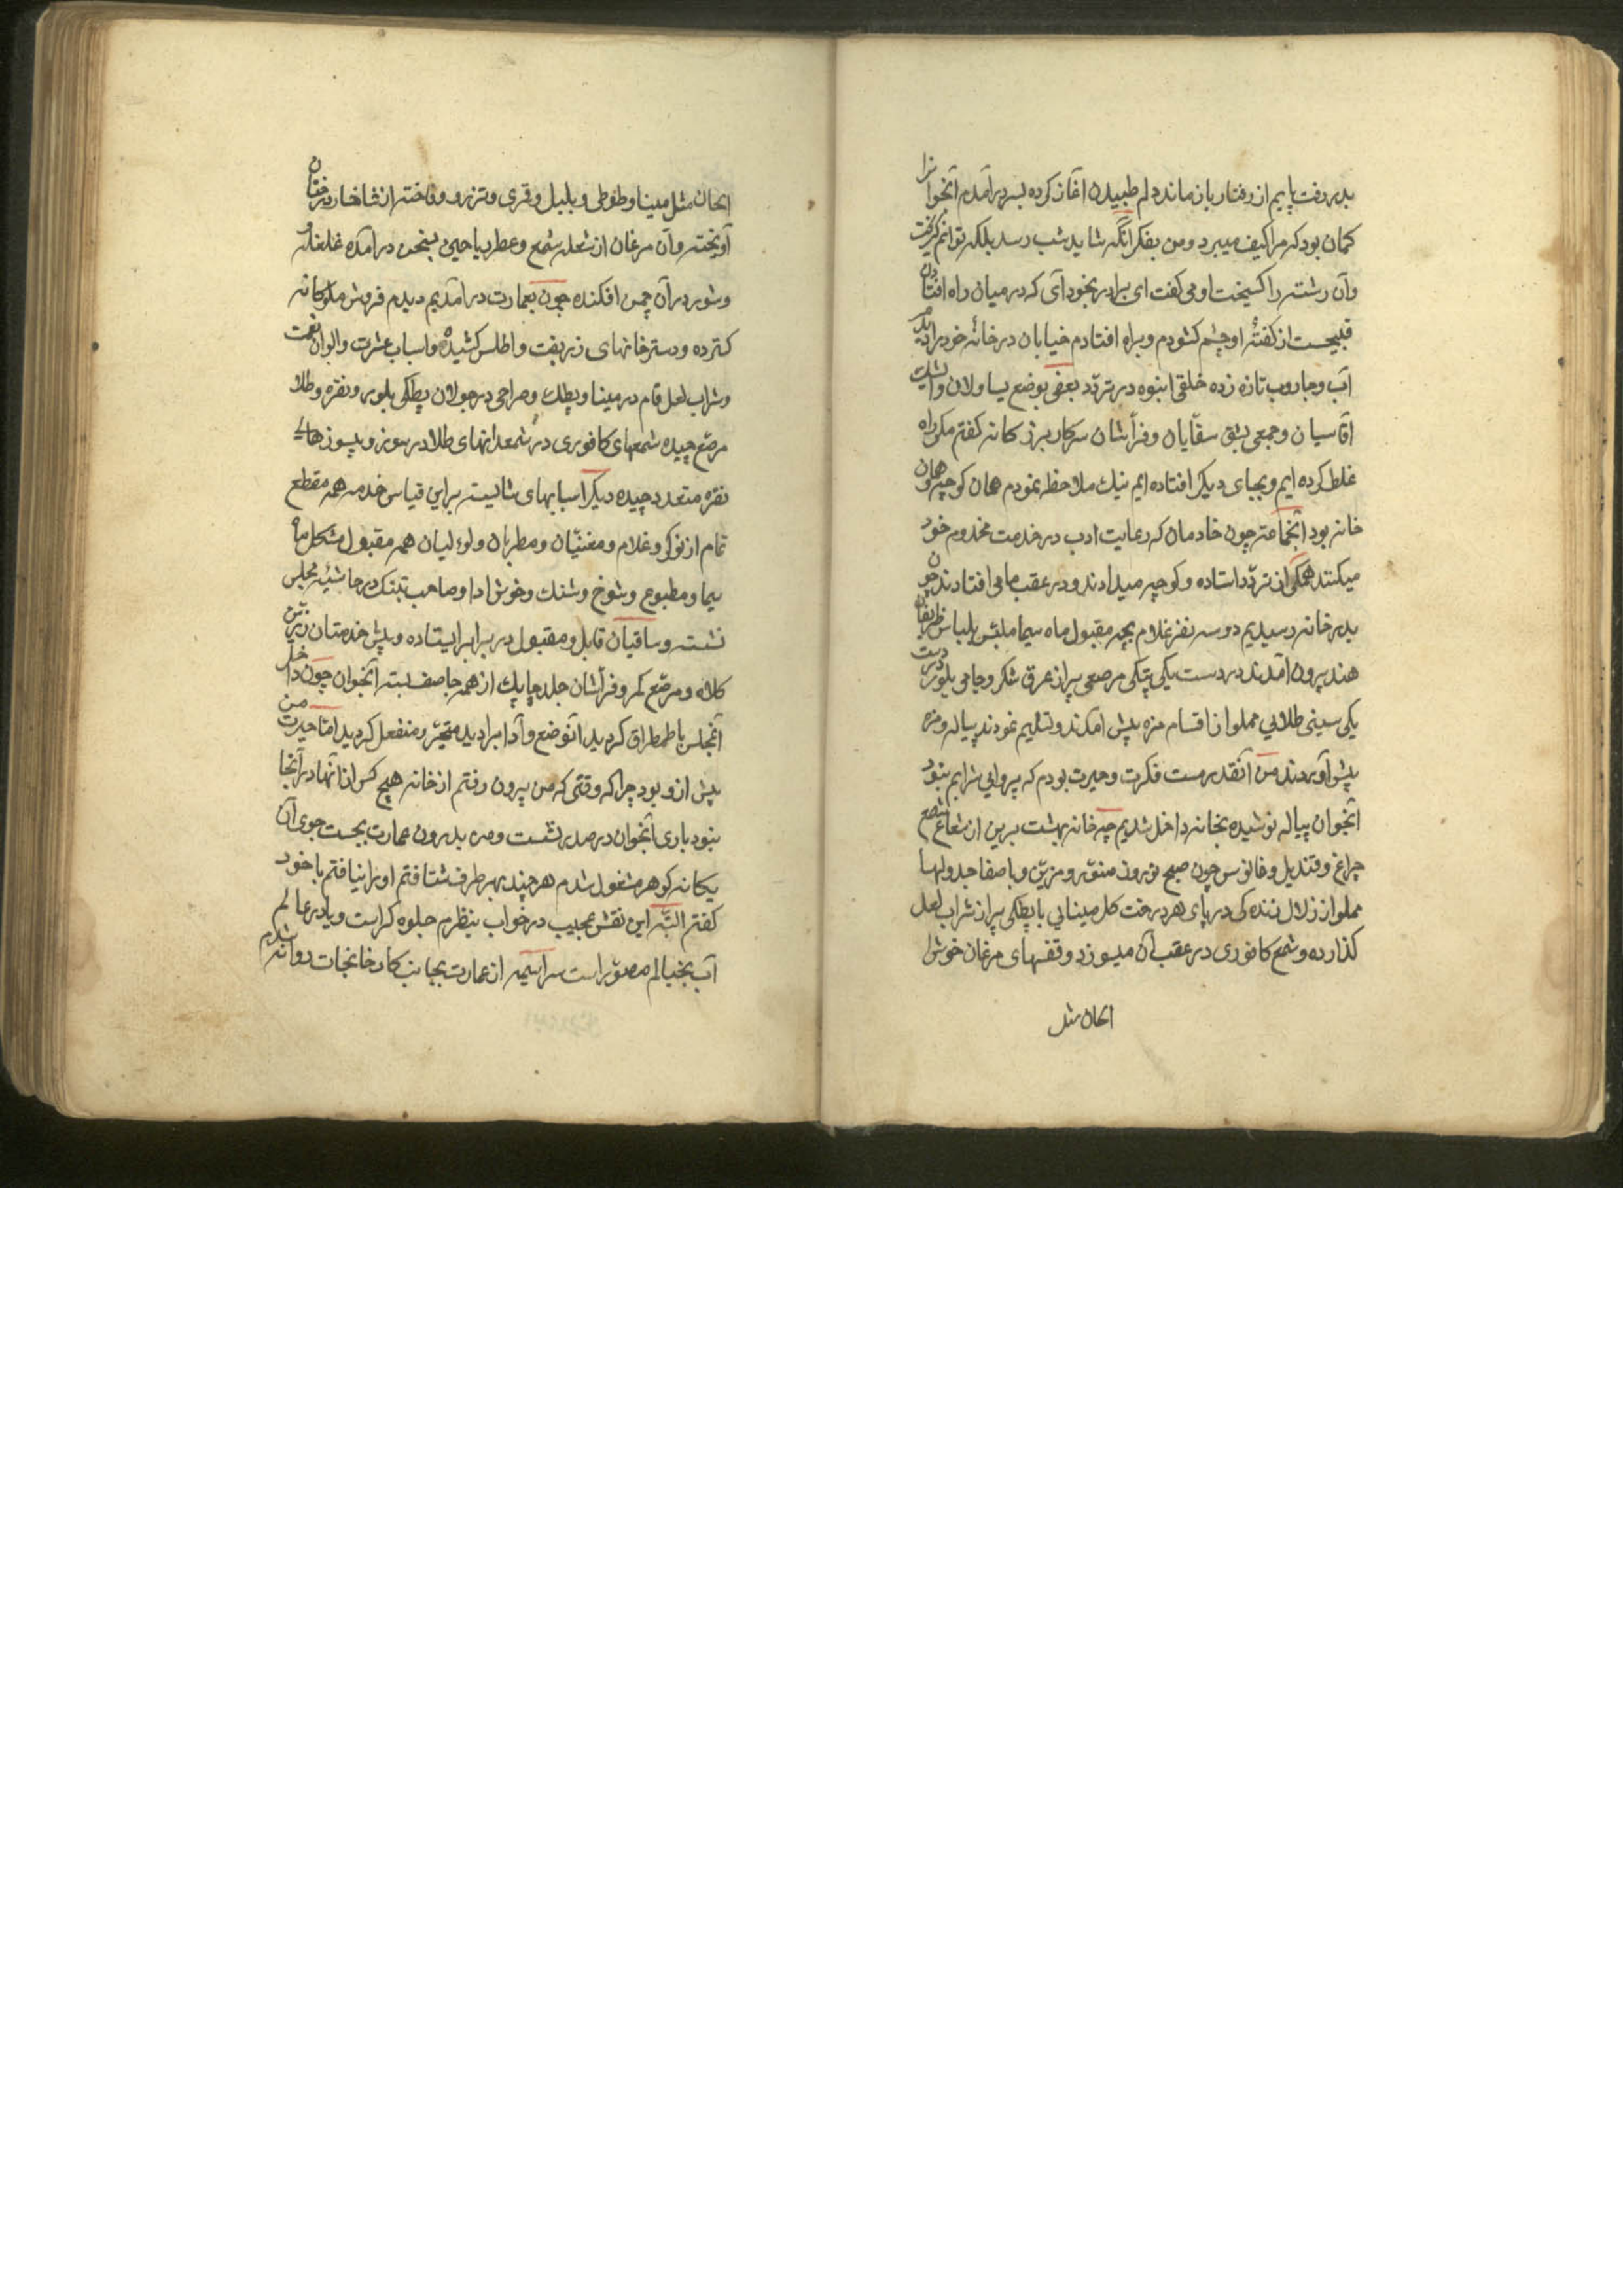 بدر رفت پایم از رفتار باز ماند دلم طپیدن آغاز کرده بسر درآمدم آنجوانرا
کمان بود که مرا کیف میبرد و من بفکر انکه شاید شب رسد بلکه توانم کریخت
وآن رشته را کسیخت او می کفت ای برادر بخود آی که در میان راه افتادن
قبیحست از کفتهٔ او چشم کشودم و براه افتادم خیابان در خانه خود را دیدم
آب و جاروب تازه زده خلقی انبوه در تردّد بعضی بوضع یساولان وایشک
اقاسیان و جمعی بشق سقّایان و فرّاشان سرکار بزرکانه کفتم مکر راه
غلط کرده ایم و بجای دیکر افتاده ایم نیک ملاحظه نمودم همان کوچه و همان
خانه بود انجماعة چون خادمان که رعایت ادب در خدمت مخدوم خود
میکنند همکی از تردّد استاده و کوچه میدادند و در عقب ما می افتادند چون
بدر خانه رسیدیم دو سه نفر غلام بچه مقبول ماه سیما ملبّس بلباس ظریفان
هند بیرون آمدند در دست یکی پتکی مرصعی پر از عرق شکر و جامی بلور در دست
یکی سینی طلایی مملو از اقسام مزه پیش آمدند و تسلیم نمودند پیاله و مزه
پیش آوردند من آنقدر مست فکرت و حیرت بودم که پروایی شرابم نبود
آنجوان پیاله نوشیده بخانه داخل شدیم چه خانه بهشت برین از شعاع شمع
چراغ و قندیل و فانوس چون صبح نوروز منوّر و مزیّن و باصفا جدولها
مملو از زلال زندکی در پای هر درخت کل مینایی با پطکی پر از شراب لعل
کذارده و شمع کافوری در عقب آن میسوزد و قفسهای مرغان خوش
الحان مثل
الحان مثل مینا و طوطی و بلبل و قمری و تزرو و فاخته از شاخسار درختان
آویخته وآن مرغان از شعله شمع و عطر ریاحین بسخن درآمده غلغله
وشور درآن چمن افکنده چون بعمارت درآمدیم دیدم فروش ملوکانه
کسترده و دسترخانهای زربفت و اطلس کشیده و اسباب عشرت والوان نعمت
و شراب لعل فام در مینا و پطک و صراحی در جولان پطکی بلور و نقره و طلا
مرصّع چیده شمعهای کافوری در شمعدانهای طلا در سوز و پیسوزهای
نقره متعدد چیده دیکر اسبابهای شایسته براین قیاس خدمه همه مقطع
تمام از نوکر و غلام و مغنیّان و مطربان و لولیان همه مقبول مشکل ماه
سیما و مطبوع و شوخ و شنک و خوش ادا و صاحب تنک در حاشیهٔ مجلس
نشسته و ساقیان قابل و مقبول در برابر ایستاده و پیش خدمتان زرّین
کلاه و مرصّع کمر و فرّاشان جلد چابک از همه جا صف بسته آنجوان چون داخل
آنمجلس باطمطراق کردید آنوضع وآدا برا دید متحیّر و منفعل کردید امّا حیرت من
پیش از و بود چرا که وقتی که من بیرون رفتم از خانه هیچ کس از آنها در آنجا
نبود باری آنجوان در صدر نشست و من بدرون عمارت بجست جوی آن
یکانه کوهر مشغول شدم هر چند بهر طرف شتافتم او را نیافتم با خود
کفتم البتّه این نقش عجیب در خواب بنظرم جلوه کراست و یا در عالم
آب بخیالم مصوّر است سراسیمه از عمارت بجانب کارخانجات روانه شدم